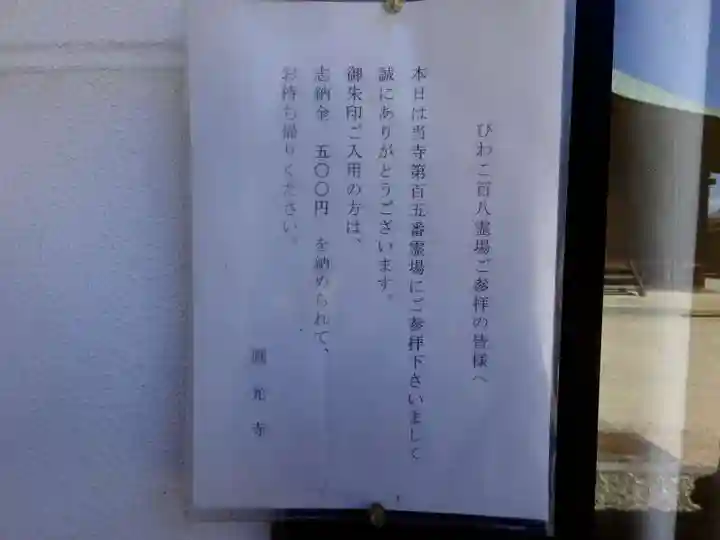 びわこ百八霊場ご参拝の皆様へ
本日は当寺第百五番霊場にご参拝下さいまして
誠にありがとうございます。
御朱印ご入用の方は、
志納金 五〇〇円 を納められて、
お持ち帰りください。
圓光寺